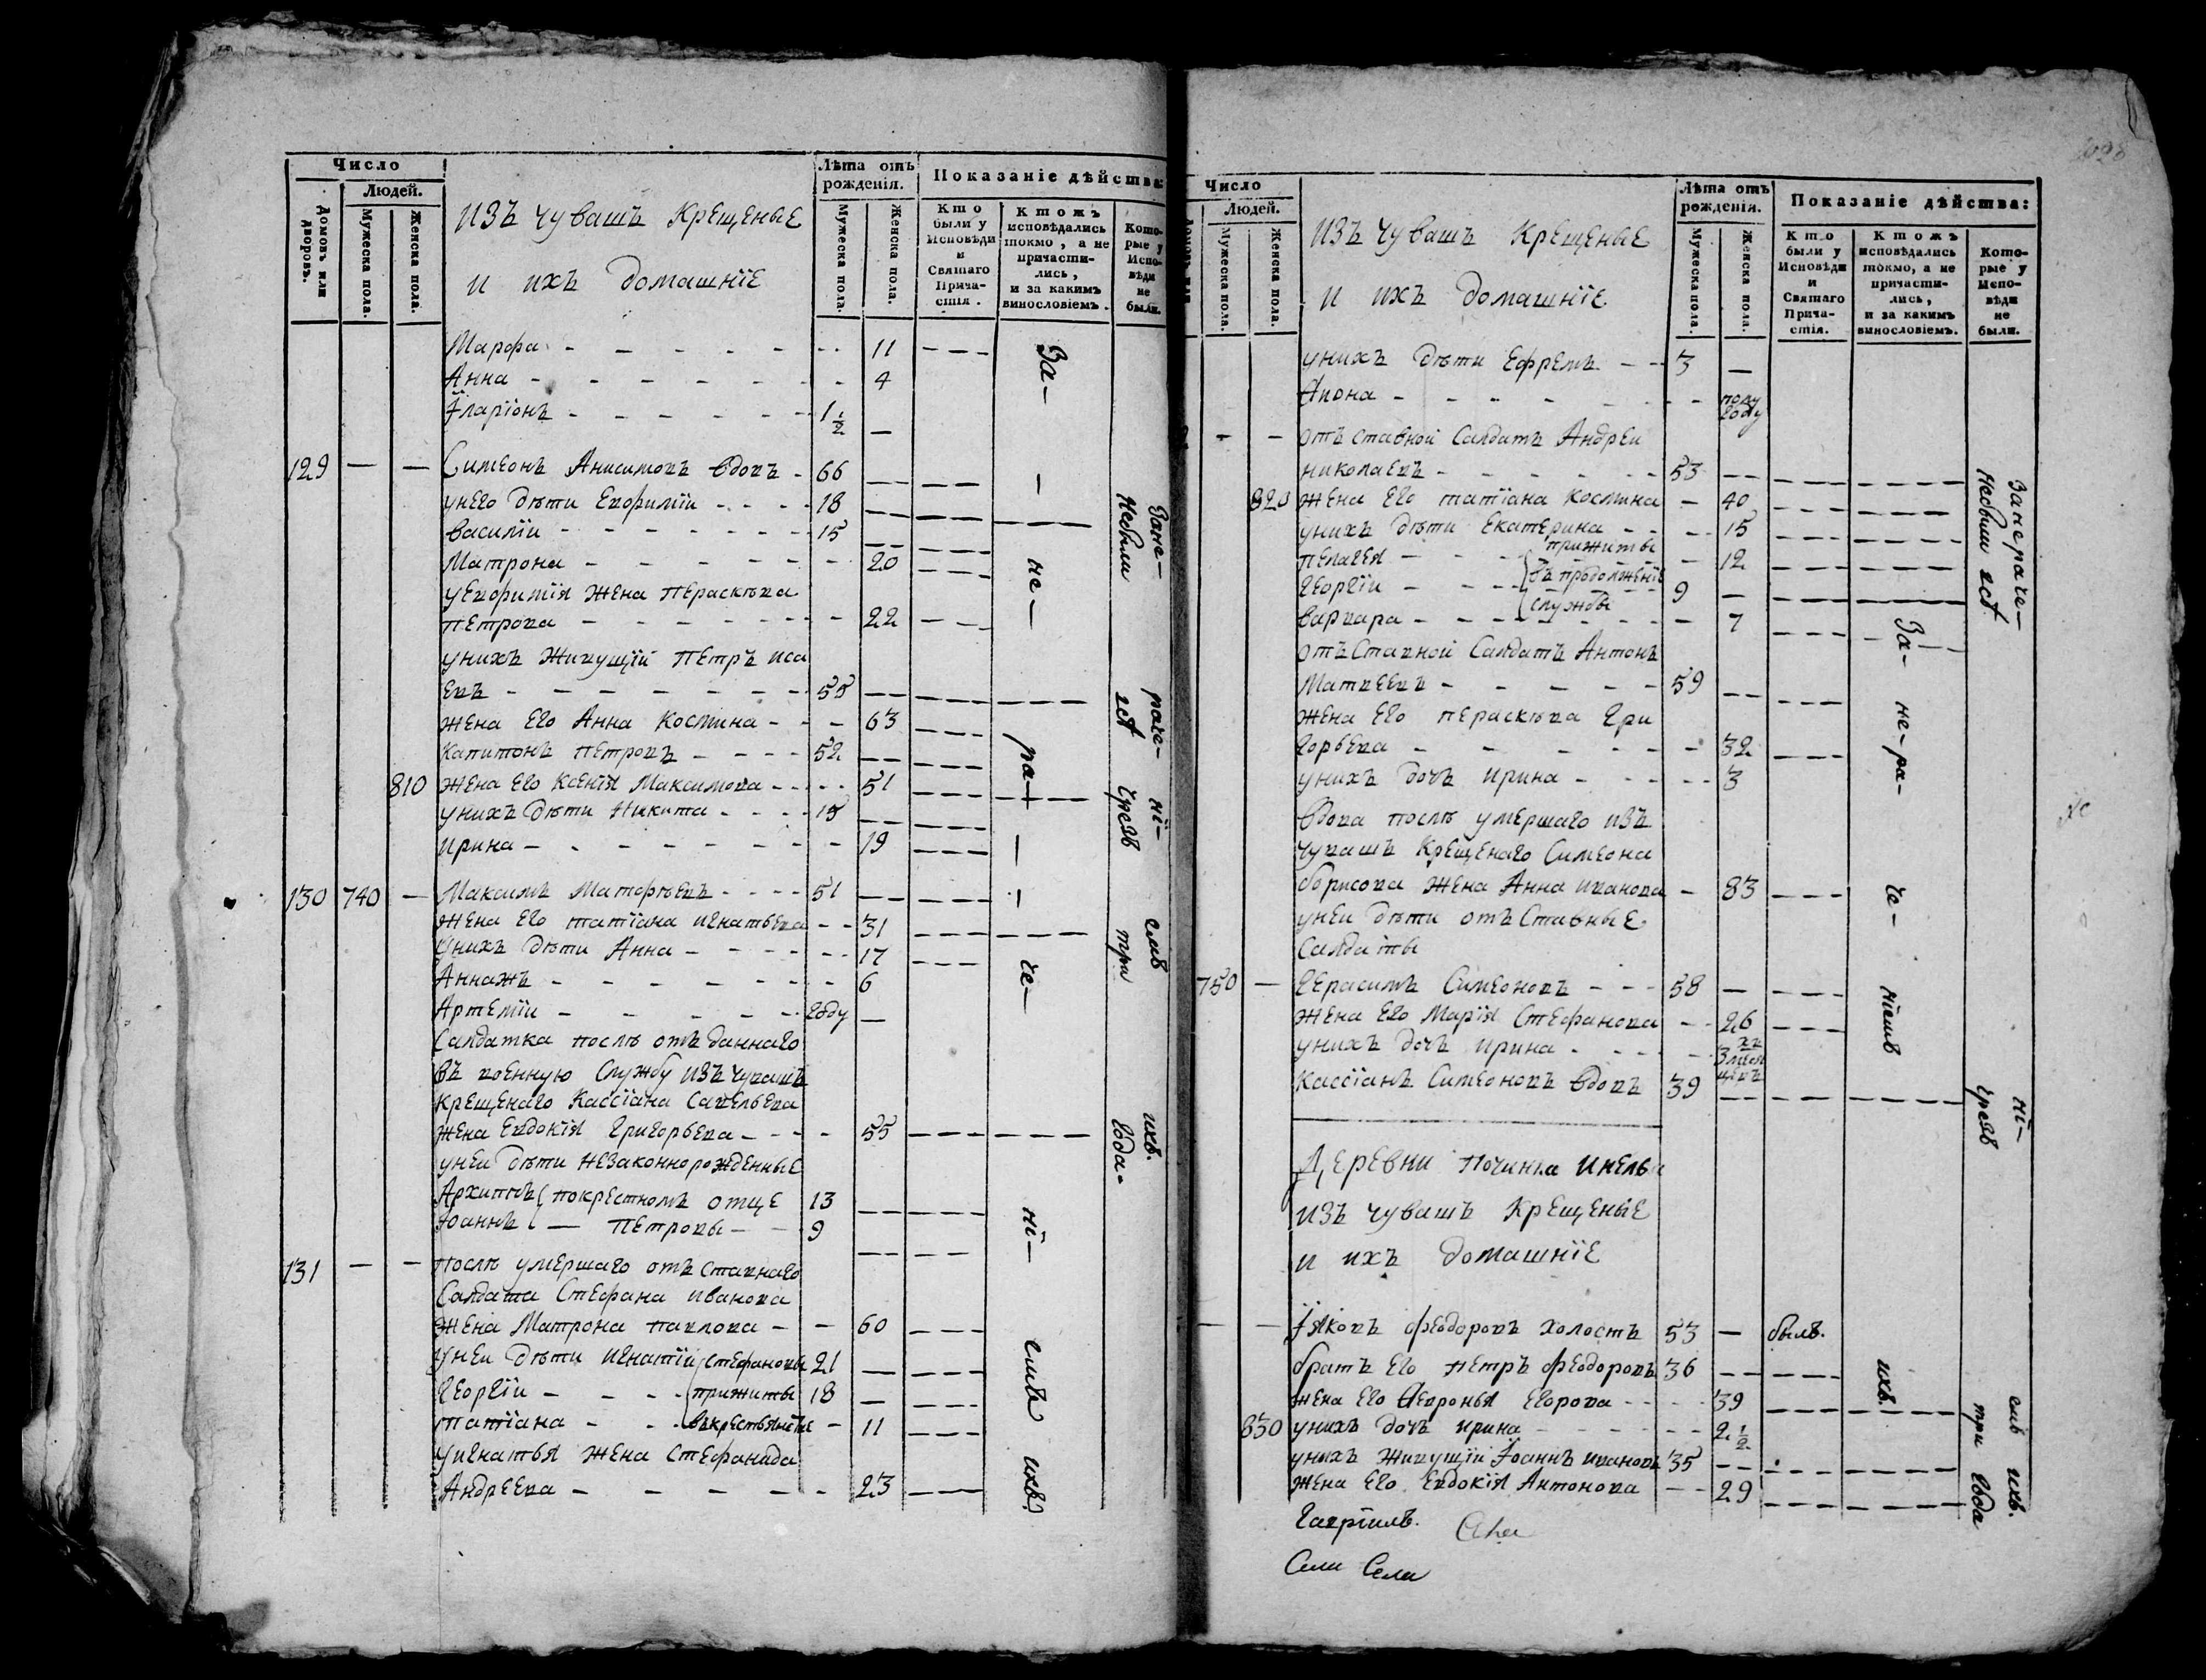 Число
Людей.
Домовъ или дворовъ.
Мужеска пола.
Женска пола.
изъ чувашъ крещеные
и ихъ домашнїе
Лѣта отъ рожденія.
Мужеска пола.
Женска пола.
Показаніе дѣйства:
Кто были у Исповѣди и Святаго Причастія.
Ктожъ исповѣдались токмо, а не причастились, и за какимъ винословіемъ.
Которые у Исповѣди не были.
Марфа - - - - - - 11
Анна - - - - - - 4
Їларїонъ - - - - - - 1 1/2 —
129 — — Симеонъ Анисимовъ вдовъ - 66
унего дѣти Евфимїи - - - 18
василїи - - - - - - 15
Матрона - - - - - - 20
уевфимїя жена пераскѣва
петрова - - - - - - 22
унихъ живущїй петръ иса
евъ - - - - - - 55
жена его Анна космина - - 63
капитонъ петровъ - - - - 52
810 жена его ксенїя максимова - - 51
унихъ дѣти никита - - - 15
ирина - - - - - - 19
130 740 — Максимъ матофѣевъ - - - - 51
жена его татїана игнатьева - - 31
унихъ дѣти Анна - - - - 17
Аннажъ - - - - - - 6
Артемїи - - - - - году —
Салдатка послѣ отъ даннаго
въ военную службу изъ чувашъ
крещенаго кассїана савельева
жена евдокїя григорьева - - - 55
унеи дѣти незаконнорожденные
Архипъ покрестномъ отце 13
Їоаннъ — петровы - - 9
131 — — послѣ умершаго отъ ставнаго
салдата стефана иванова
жена матрона павлова - - 60
унеи дѣти игнатїи стефановы 21
георгїи - - - прижиты 18
татїана - - вкрестьянстве - 11
уигнатья жена стефанида
Андреева - - - - - 23
За-
не-
ра-
че-
нї-
емъ
ихъ
Зане-
раче-
нї-
емъ
ихъ.
небыли
уст
чрезъ
три
года-
Число
Людей.
Мужеска пола.
Женска пола.
изъ чувашъ крещеные
и ихъ домашнїе
Лѣта отъ рожденія.
Мужеска пола.
Женска пола.
Показаніе дѣйства:
Кто были у Исповѣди и Святаго Причастія.
Ктожъ исповѣдались токмо, а не причастились, и за какимъ винословіемъ.
Которые у Исповѣди не были.
унихъ дѣти ефремъ - - 3 —
- - - - - - полу году
- - отъ ставной салдатъ Андреи
николаевъ - - - - - - 53
820 жена его татїана космина - 40
унихъ дѣти екатерина - - - 15
пелагея - - - прижиты - 12
георгїи - - - въ продолженїе 9 —
службы
варвара - - - - - - 7
отъ ставной салдатъ Антонъ
матвеевъ - - - - - 59
жена его пераскѣва гри
горьева - - - - - - 32
унихъ дочь ирина - - - - 3
вдова послѣ умершаго изъ
чувашъ крещенаго симеона
борисова жена Анна иванова - 83
унеи дѣти отъ ставные
салдаты
750 — герасимъ симеоновъ - - - 58 —
жена его марїя стефанова - - 26
унихъ дочь ирина - - - - 3 месяцевъ
кассїанъ симеоновъ вдовъ 39
Деревни починка инель
изъ чувашъ крещеные
и ихъ домашнїе
Їяковъ феодоровъ холостъ 53 — былъ.
братъ его петръ феодоровъ 36
жена его егорова - - - 39
830 унихъ дочь ирина - - - - 2 1/2
унихъ живущїи Їоаннъ ивановъ 35
жена его евдокїя антонова - - 29
За-
не-
ра-
че-
нїемъ
ихъ.
Занераче-
нї-
емъ
ихъ.
небыли уст
чрезъ
три
года
Гаврїилъ.
Сели Сели